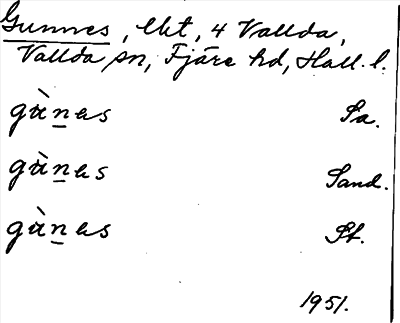 Gunnes, lht, 4 Vallda,
Vallda sn, Fjäre hd, Hall. l.
gùnes Sa.
gùnes Sand.
gùnes St.
1951.